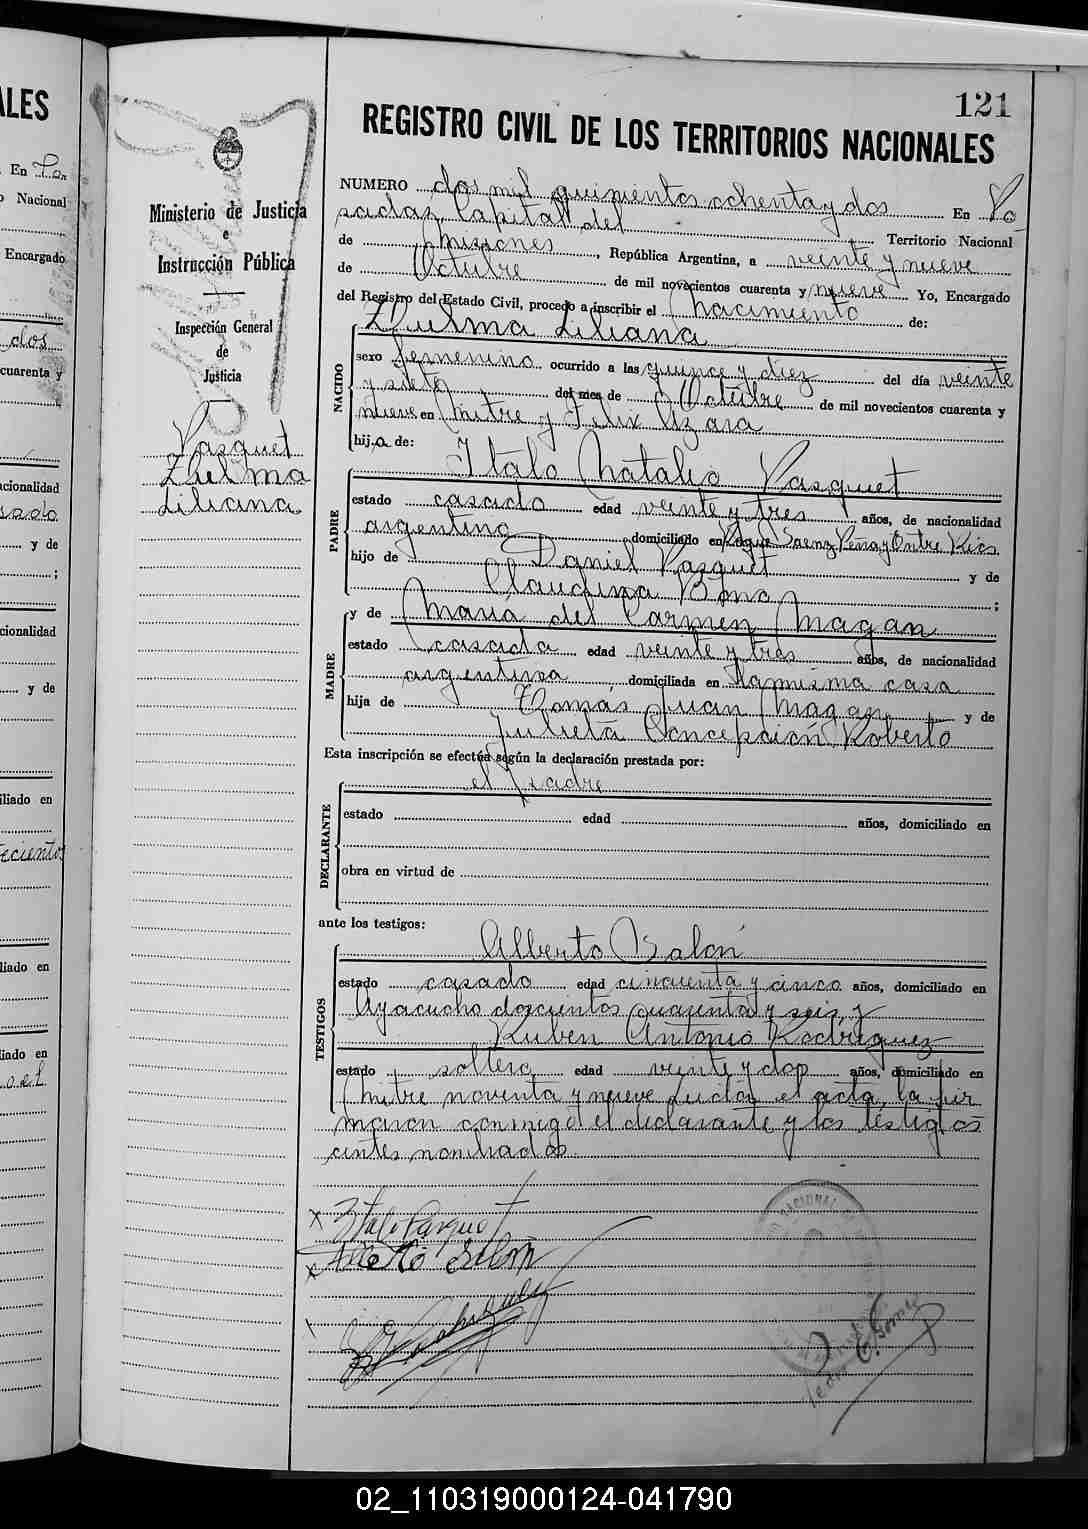 ALES
En Po
o Nacional
Encargado
dos
cuarenta y
acionalidad
y de
;
cionalidad
y de
iliado en
ecientos
liado en
iado en
121
REGISTRO CIVIL DE LOS TERRITORIOS NACIONALES
Ministerio de Justicia
e
Instrucción Pública
Inspección General
de
Justicia
Vasquet
Thelma
Liliana
NUMERO dos mil quinientos ochenta y dos En Po
sadas, Capital del Territorio Nacional
de Misiones, República Argentina, a veinte y nueve
de Octubre de mil novecientos cuarenta y nueve Yo, Encargado
del Registro del Estado Civil, procedo a inscribir el Nacimiento de:
NACIDO
Thelma Liliana
sexo femenino ocurrido a las quince y diez del día veinte
y siete del mes de Octubre de mil novecientos cuarenta y
nueve en Mitre y Felix Azara
hija de: Italo Natalio Vasquet
PADRE
estado casado edad veinte y tres años, de nacionalidad
argentino domiciliado en Roque Saenz Peña y Entre Rios
hijo de Daniel Vasquet y de
Claudina Bono ;
MADRE
y de Maria del Carmen Magan
estado casada edad veinte y tres años, de nacionalidad
argentina, domiciliada en la misma casa
hija de Tomás Juan Magan y de
Julieta Concepción Roberto
Esta inscripción se efectúa según la declaración prestada por:
DECLARANTE
el padre
estado edad años, domiciliado en
obra en virtud de
ante los testigos:
TESTIGOS
Alberto Balon
estado casado edad cincuenta y cinco años, domiciliado en
Ayacucho doscientos cuarenta y seis, y
Ruben Antonio Rodriguez
estado soltero edad veinte y dos años, domiciliado en
Mitre noventa y nueve Leida el acta, la fir
maron conmigo el declarante y los testigos
antes nombrados.
x Italo Vasquet
x Alberto Balon
02_110319000124-041790